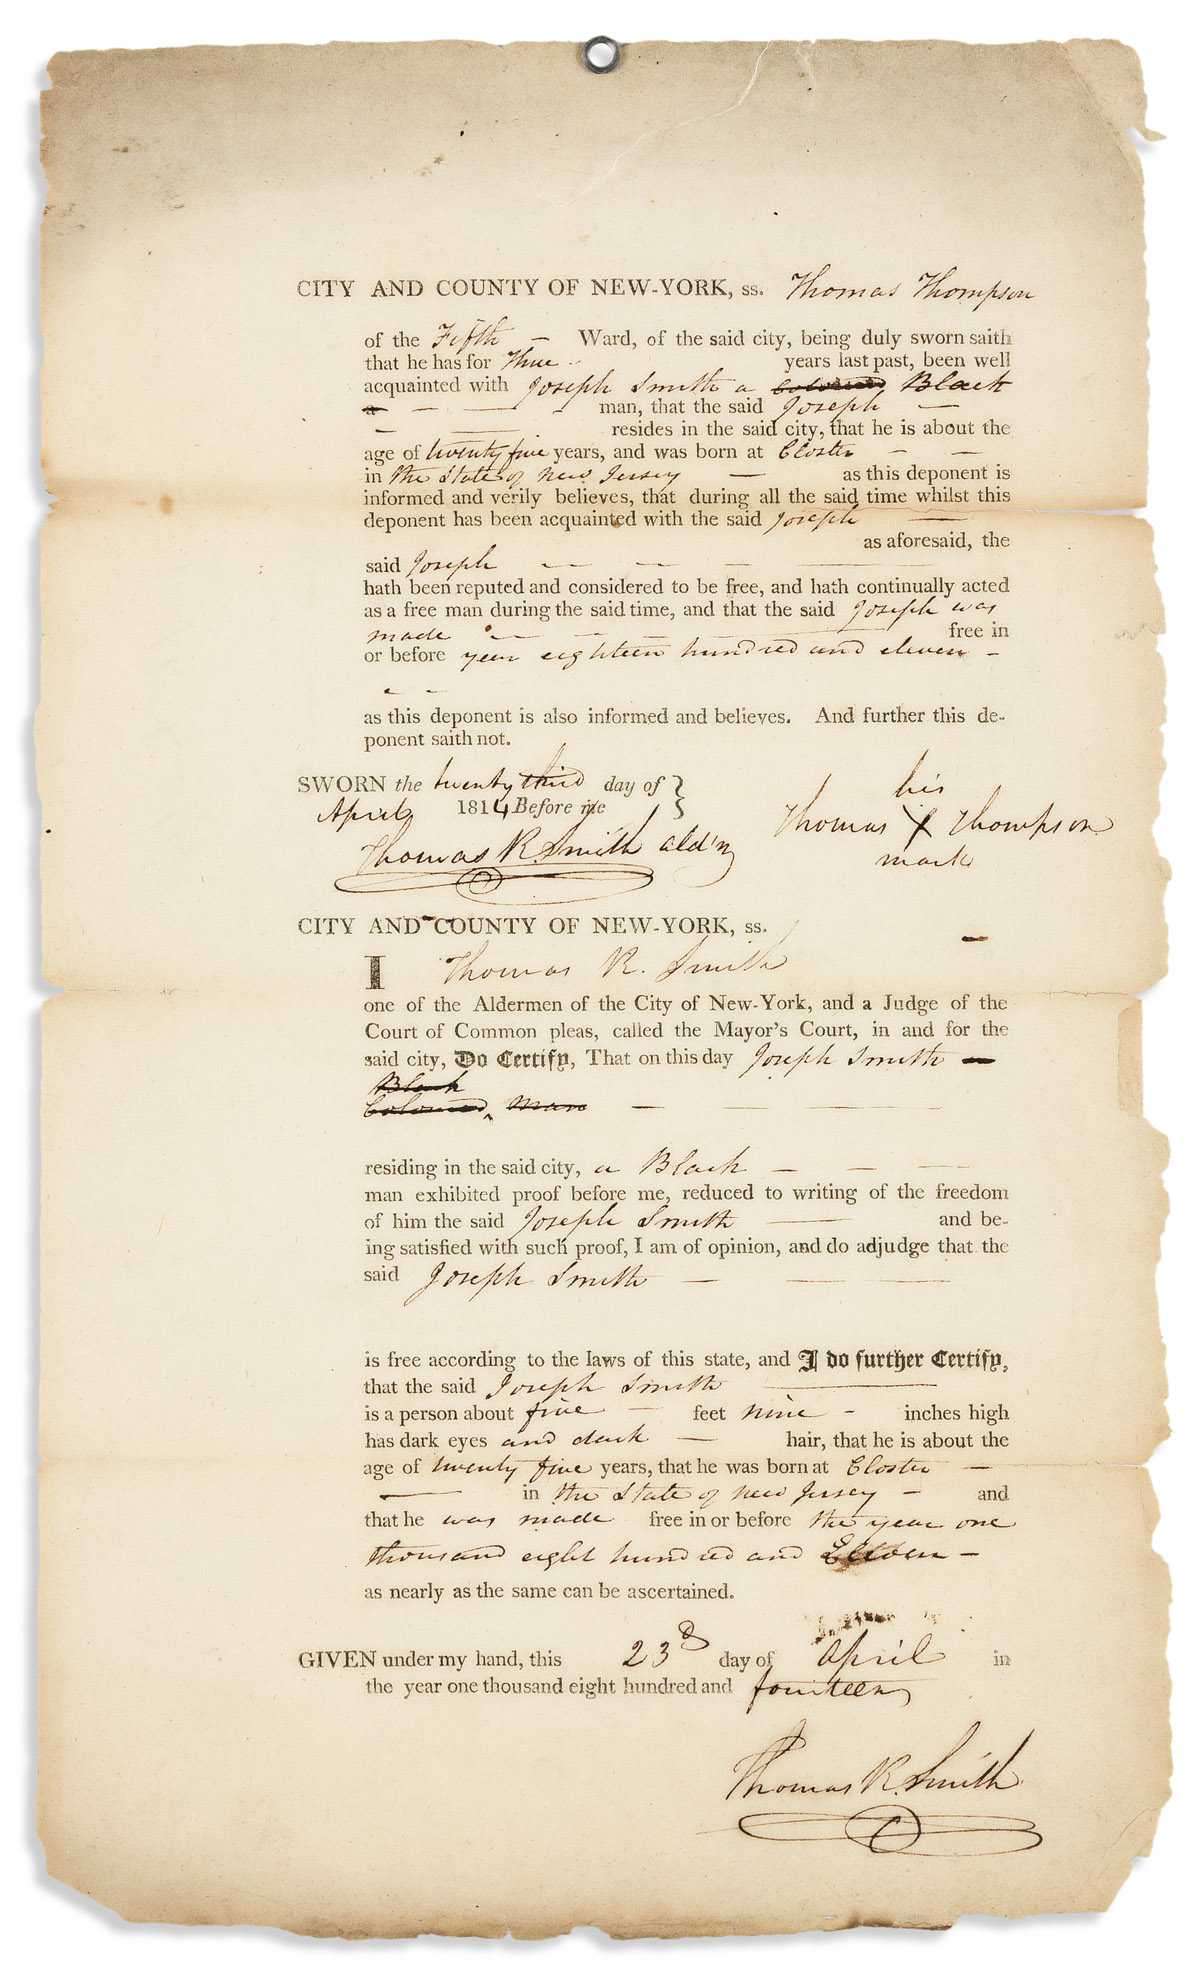 CITY AND COUNTY OF NEW-YORK, ss. Thomas Thompson
of the Fifth — Ward, of the said city, being duly sworn saith
that he has for Three - years last past, been well
acquainted with Joseph Smith a coloured Black
a — — — — man, that the said Joseph —
— — resides in the said city, that he is about the
age of twenty five years, and was born at Closter — —
in the State of New Jersey — as this deponent is
informed and verily believes, that during all the said time whilst this
deponent has been acquainted with the said Joseph —
as aforesaid, the
said Joseph — — — —
hath been reputed and considered to be free, and hath continually acted
as a free man during the said time, and that the said Joseph was
made — — — free in
or before year eighteen hundred and eleven -
- -
as this deponent is also informed and believes. And further this de-
ponent saith not.
SWORN the twenty third day of }
April 1814 Before me }
his
Thomas X Thompson
mark
Thomas R. Smith ald'n
CITY AND COUNTY OF NEW-YORK, ss.
I Thomas R. Smith —
one of the Aldermen of the City of New-York, and a Judge of the
Court of Common pleas, called the Mayor's Court, in and for the
said city, Do Certify, That on this day Joseph Smith —
Black
Coloured ‸ Man — — —
residing in the said city, a Black — — —
man exhibited proof before me, reduced to writing of the freedom
of him the said Joseph Smith — and be-
ing satisfied with such proof, I am of opinion, and do adjudge that the
said Joseph Smith — —
is free according to the laws of this state, and I do further Certify,
that the said Joseph Smith —
is a person about five — feet nine - inches high
has dark eyes and dark — hair, that he is about the
age of twenty five years, that he was born at Closter —
— in the State of New Jersey - and
that he was made free in or before the year one
thousand eight hundred and Eleven —
as nearly as the same can be ascertained.
GIVEN under my hand, this 23d day of April in
the year one thousand eight hundred and fourteen
Thomas R. Smith